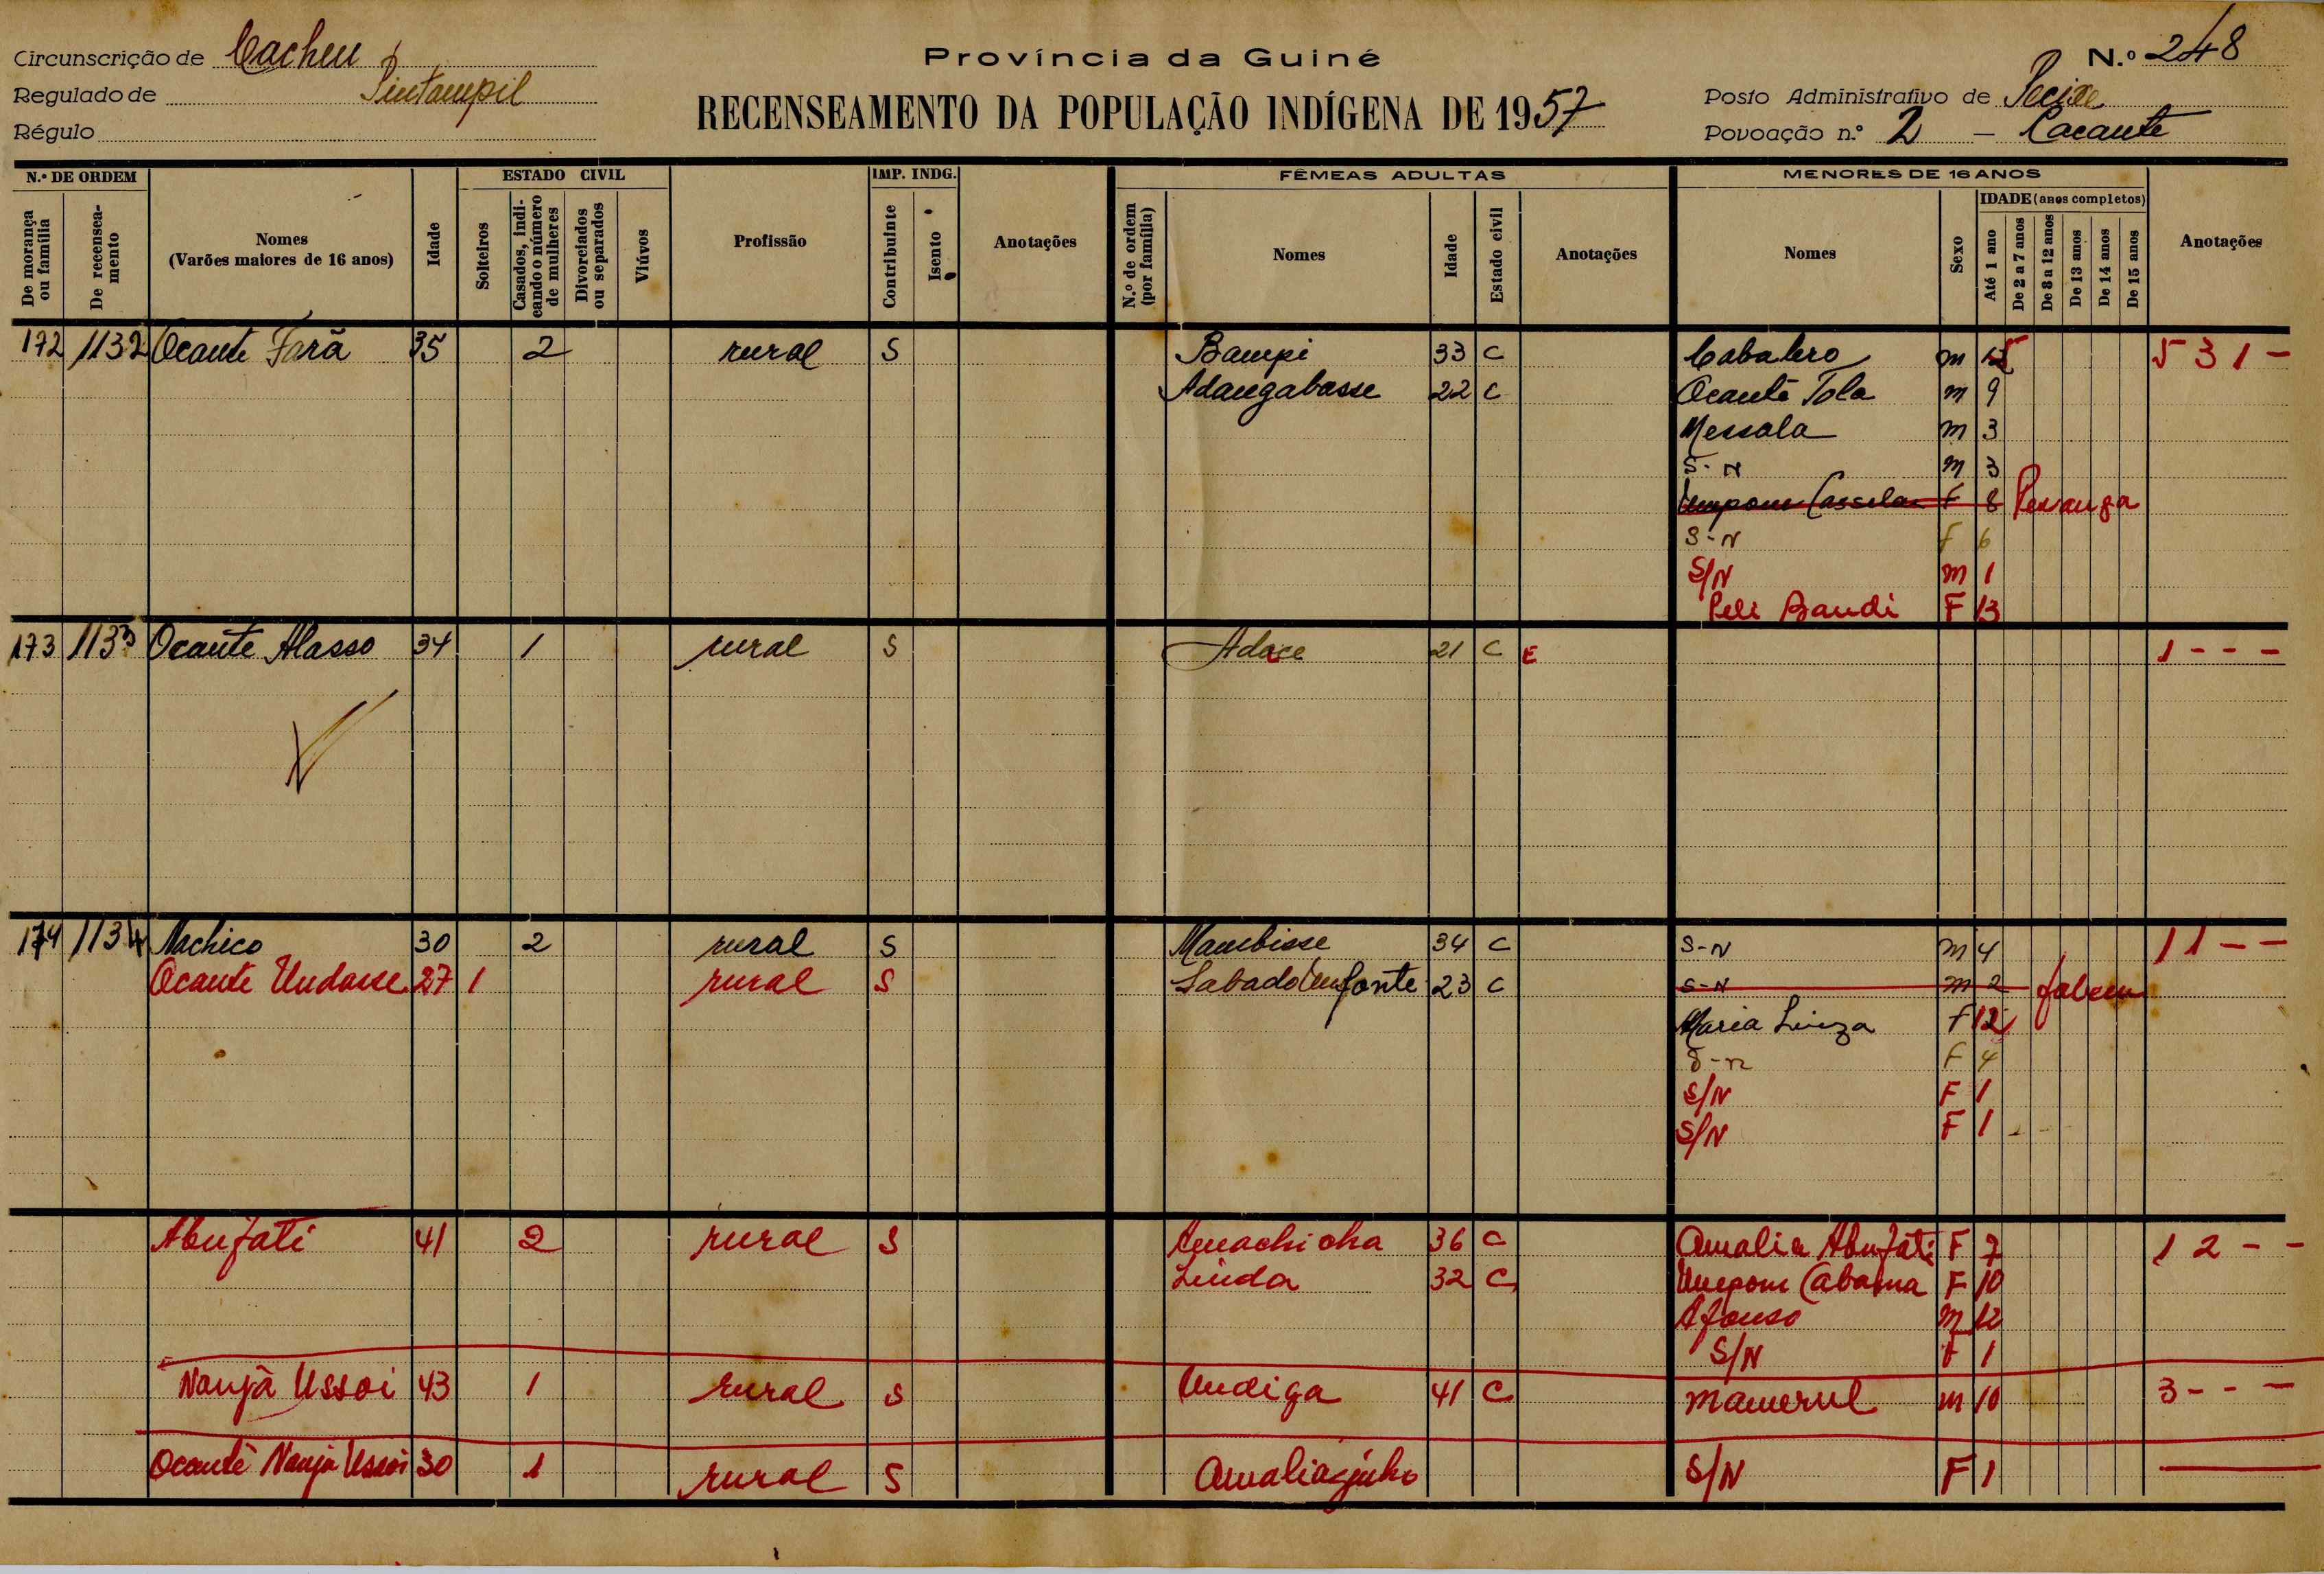 Circunscrição de Cacheu
Província da Guiné
N.º 248
Regulado de Pintampil
RECENSEAMENTO DA POPULAÇÃO INDÍGENA DE 1957
Posto Administrativo de Pecixe
Régulo
Povoação n.º 2 - Cacante
N.º DE ORDEM
De morança ou família
De recenseamento
Nomes
(Varões maiores de 16 anos)
Idade
ESTADO CIVIL
Solteiros
Casados, indicando o número de mulheres
Divorciados ou separados
Viúvos
Profissão
IMP. INDG.
Contribuinte
Isento
Anotações
FÊMEAS ADULTAS
N.º de ordem (por família)
Nomes
Idade
Estado civil
Anotações
MENORES DE 16 ANOS
Nomes
Sexo
IDADE (anos completos)
Até 1 ano
De 2 a 7 anos
De 8 a 12 anos
De 13 anos
De 14 anos
De 15 anos
Anotações
172 1132 Ocante Farã 35 2 rural S Bampi 33 C Cabalero m 15 5 3 1 -
Adangabasse 22 C Ocantê Tola m 9
Messala m 3
S-N m 3
Umpom Cassela F 8
S-N F 6
S/N m 1
Peli Bandi F 13
173 1133 Ocante Alasso 34 1 rural S Adace 21 C E 1 - - -
174 1134 Nachico 30 2 rural S Mambisse 34 C S-N m 4 1 1 - -
Ocante Undasse 27 1 rural S Sabado 23 C S-N m 2 faleceu
Maria Luiza F 12
S-n F 4
S/N F 1
S/N F 1
Abufati 41 2 rural S Amachicha 36 C Amalia Abufati F 7 1 2 - -
Linda 32 C Umpom Cabama F 10
Afonso m 12
S/N F 1
Nanjà Ussoi 43 1 rural S Undiga 41 C Mamerul m 10 3 - - -
Ocantê Nanjà Ussoi 30 1 rural S S/N F 1